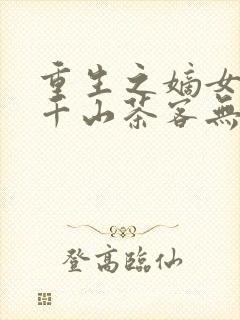 重生之嫡女
千山茶客無
登高臨仙